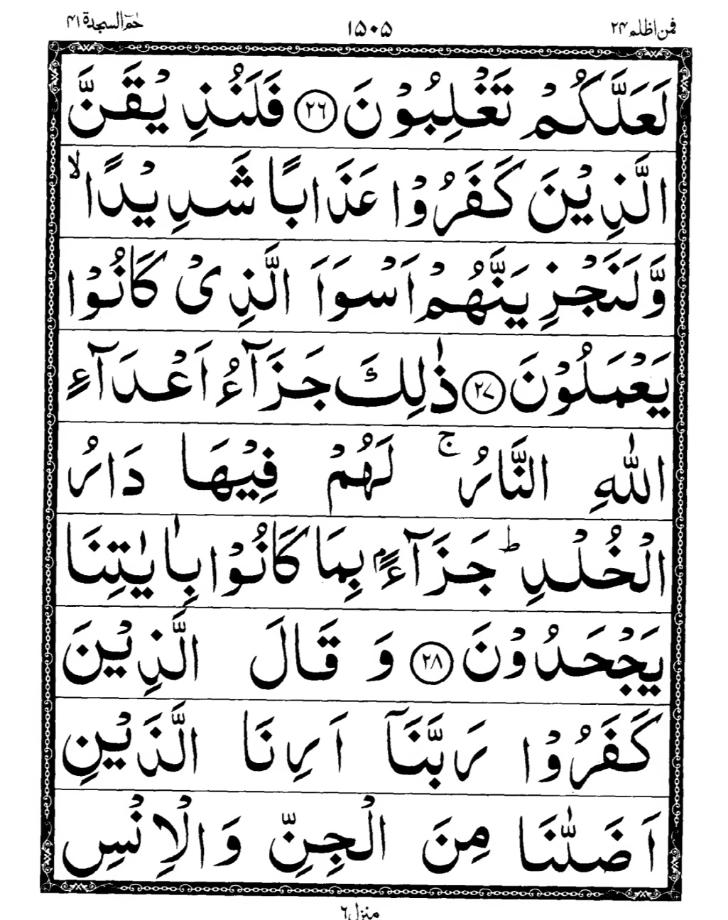 حٰمٓ السجدة ۴۱
۱۵۰۵
فمن اظلم ۲۴
لَعَلَّكُمْ تَغْلِبُوْنَ ﴿۲۶﴾ فَلَنُذِيْقَنَّ
الَّذِيْنَ كَفَرُوْا عَذَابًا شَدِيْدًا ۙ
وَّلَنَجْزِيَنَّهُمْ اَسْوَاَ الَّذِىْ كَانُوْا
يَعْمَلُوْنَ ﴿۲۷﴾ ذٰلِكَ جَزَآءُ اَعْدَآءِ
اللّٰهِ النَّارُ ۚ لَهُمْ فِيْهَا دَارُ
الْخُلْدِ ؕ جَزَآءًۢ بِمَا كَانُوْا بِاٰيٰتِنَا
يَجْحَدُوْنَ ﴿۲۸﴾ وَ قَالَ الَّذِيْنَ
كَفَرُوْا رَبَّنَاۤ اَرِنَا الَّذَيْنِ
اَضَلّٰنَا مِنَ الْجِنِّ وَالْاِنْسِ
منزل ۶